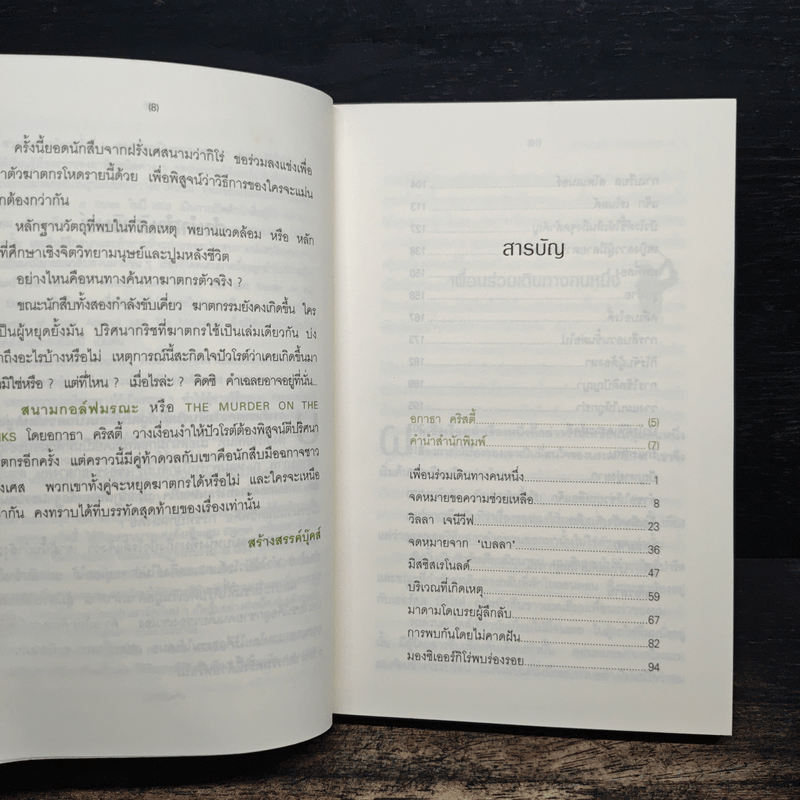 (8)
ครั้งนี้ยอดนักสืบจากฝรั่งเศสนามว่ากิโร่ ขอร่วมลงแข่งเพื่อ
าตัวฆาตกรโหดรายนี้ด้วย เพื่อพิสูจน์ว่าวิธีการของใครจะแม่น
กต้องกว่ากัน
หลักฐานวัตถุที่พบในที่เกิดเหตุ พยานแวดล้อม หรือ หลัก
ที่ศึกษาเชิงจิตวิทยามนุษย์และปูมหลังชีวิต
อย่างไหนคือหนทางค้นหาฆาตกรตัวจริง ?
ขณะนักสืบทั้งสองกำลังขับเคี่ยว ฆาตกรรมยังคงเกิดขึ้น ใคร
เป็นผู้หยุดยั้งมัน ปริศนากริชที่ฆาตกรใช้เป็นเล่มเดียวกัน บ่ง
าถึงอะไรบ้างหรือไม่ เหตุการณ์นี้สะกิดใจปัวโรต์ว่าเคยเกิดขึ้นมา
วมิใช่หรือ ? แต่ที่ไหน ? เมื่อไรล่ะ ? คิดซิ คำเฉลยอาจอยู่ที่นั่น...
สนามกอล์ฟมรณะ หรือ THE MURDER ON THE
NKS โดยอกาธา คริสตี้ วางเงื่อนงำให้ปัวโรต์ต้องพิสูจน์ตีปริศนา
าตกรอีกครั้ง แต่คราวนี้มีคู่ท้าดวลกับเขาคือนักสืบมือฉกาจชาว
งเศส พวกเขาทั้งคู่จะหยุดฆาตกรได้หรือไม่ และใครจะเหนือ
ว่ากัน คงทราบได้ที่บรรทัดสุดท้ายของเรื่องเท่านั้น
สร้างสรรค์บุ๊คส์
สารบัญ
อกาธา คริสตี้ (5)
คำนำสำนักพิมพ์ (7)
เพื่อนร่วมเดินทางคนหนึ่ง 1
จดหมายขอความช่วยเหลือ 8
วิลลา เจนีวีฟ 23
จดหมายจาก ‘เบลลา’ 36
มิสซิสเรโนลด์ 47
บริเวณที่เกิดเหตุ 59
มาดามโดเบรยผู้ลึกลับ 67
การพบกันโดยไม่คาดฝัน 82
มองซิเออร์กิโร่พบร่องรอย 94